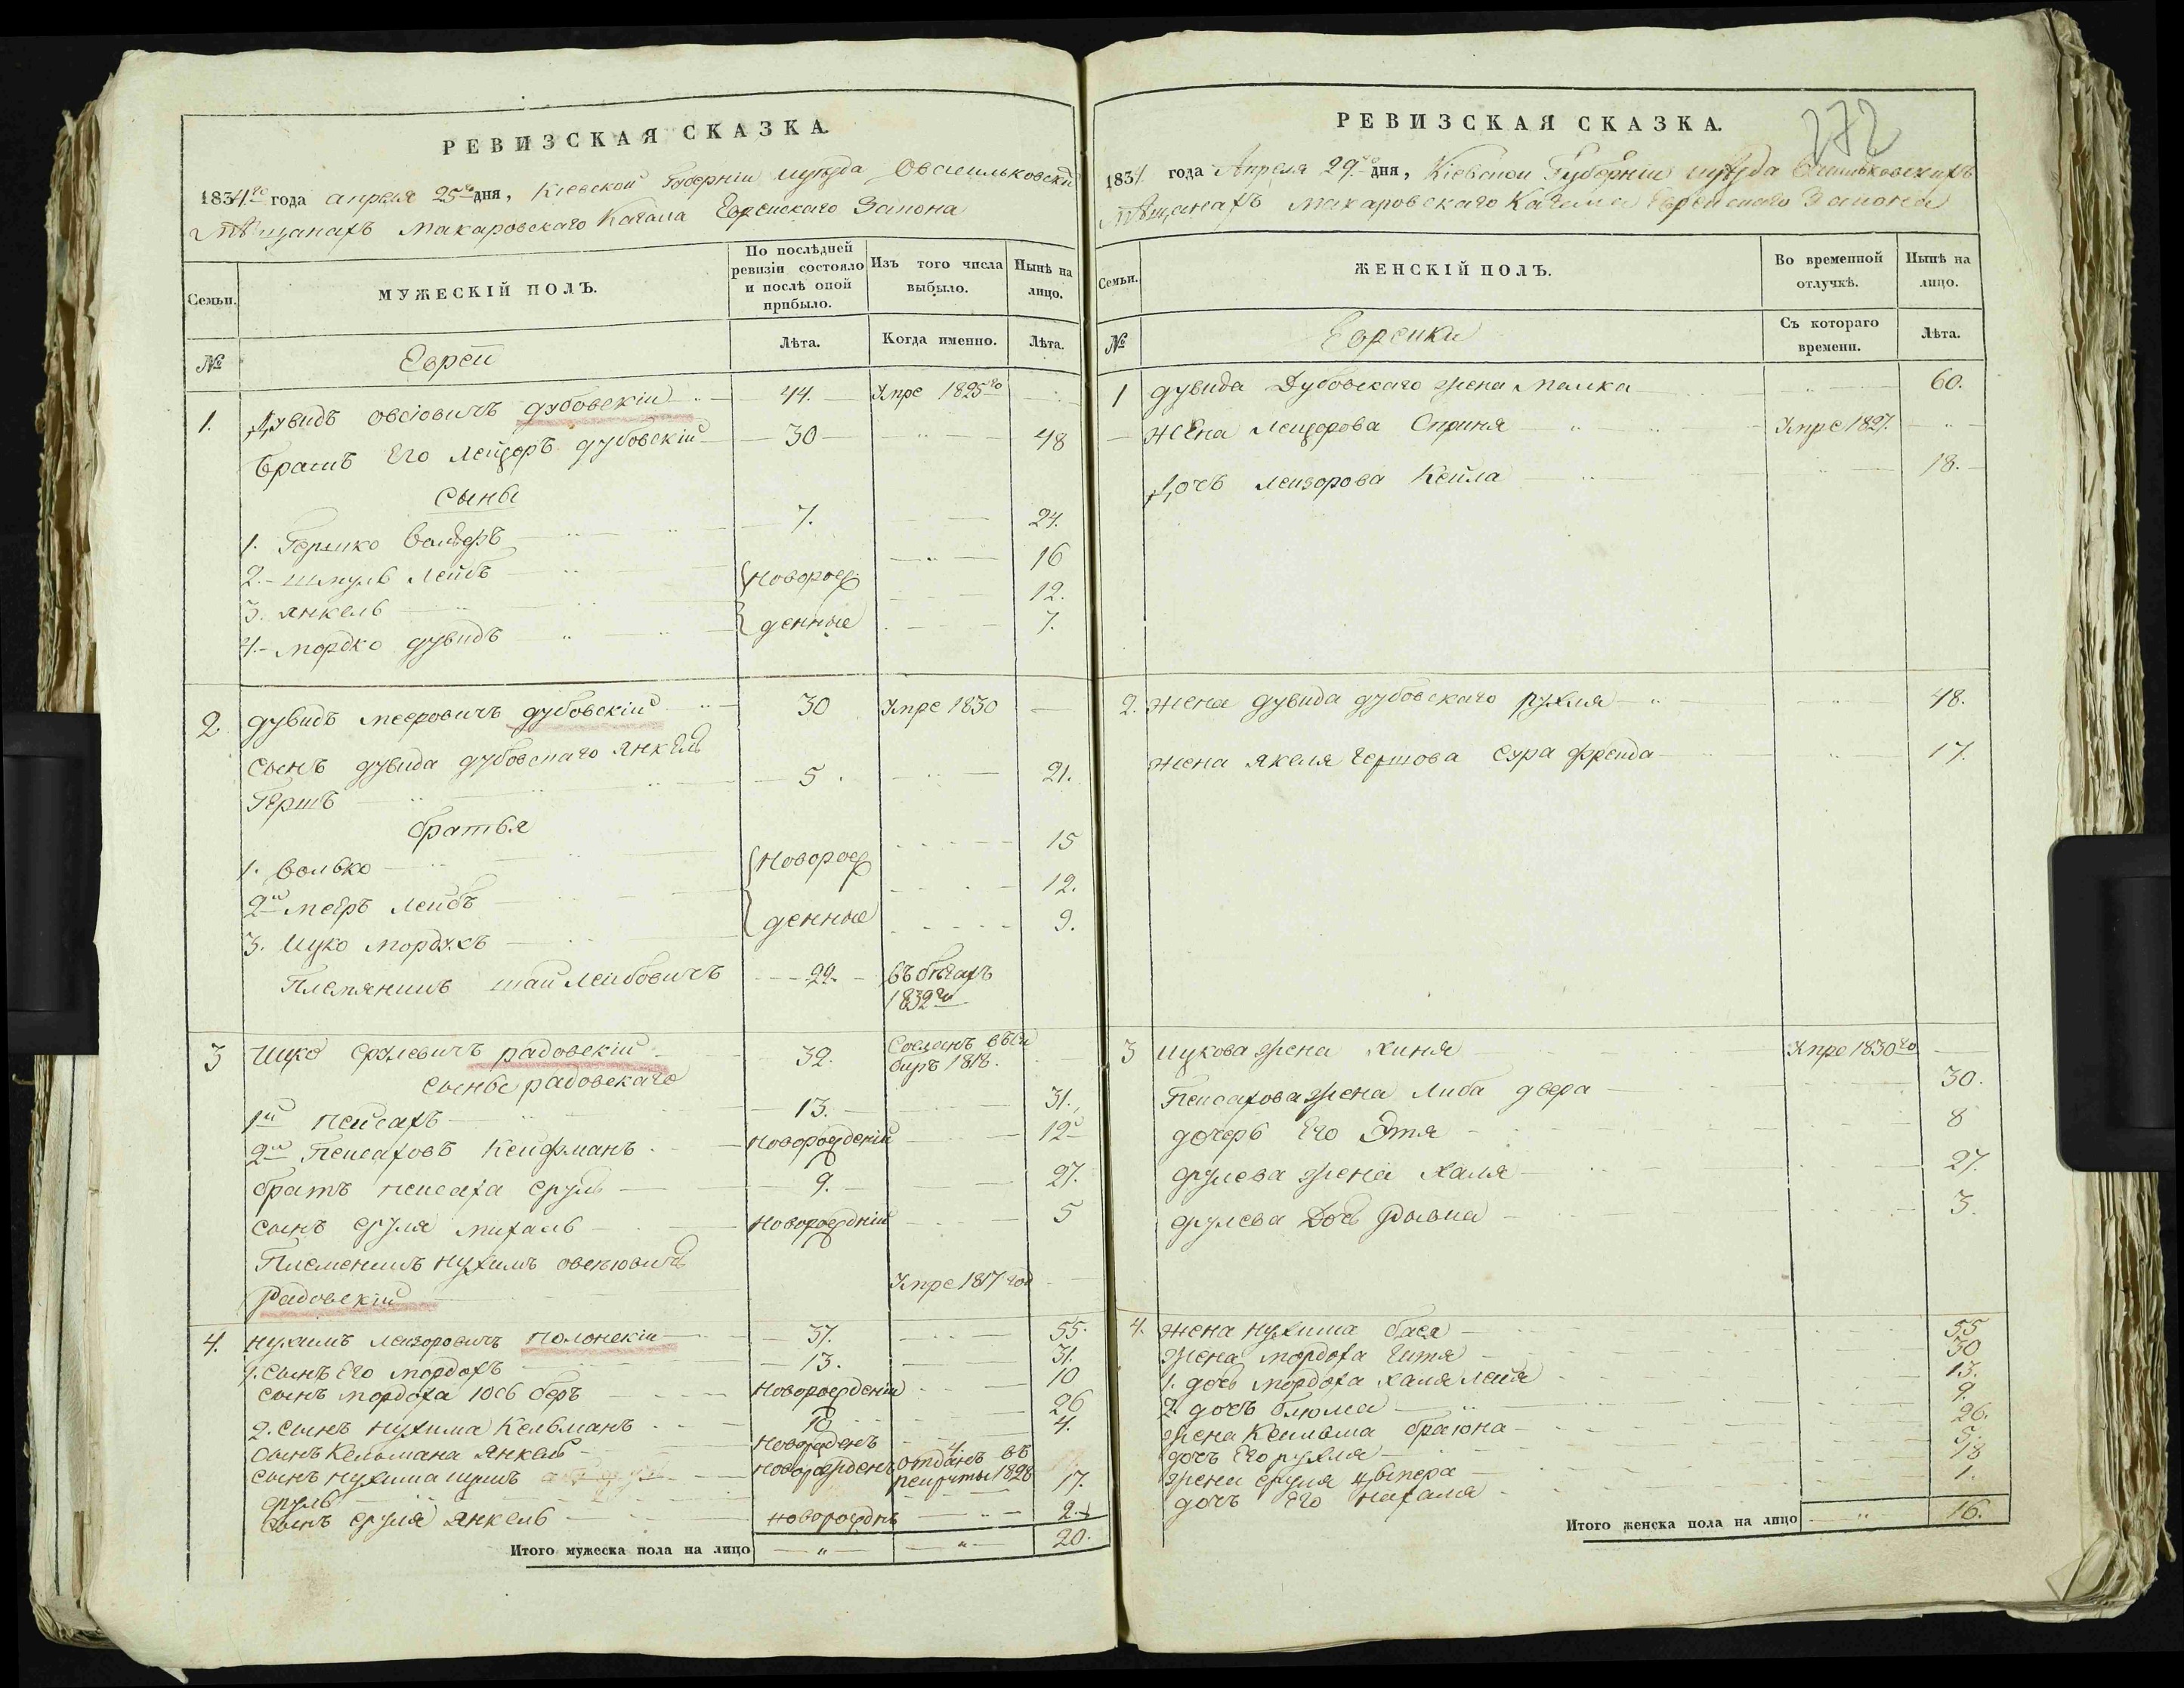 РЕВИЗСКАЯ СКАЗКА.
1834го года апреля 25го дня, Кіевской Губерніи и уезда Овасильковски
Мѣщанахъ Макаровскаго Кагала Еврейскаго Закона
Семьи.
МУЖЕСКІЙ ПОЛЪ.
По послѣдней ревизіи состояло и послѣ оной прибыло.
Изъ того числа выбыло.
Нынѣ на лицо.
№
Евреи
Лѣта.
Когда именно.
Лѣта.
1. Дувидъ Овсіовичъ Дубовскій 44. Умре 1825го
Братъ Его Лейзоръ Дубовскій 30 48
Сыны
1. Гершко Вольфъ 7. 24.
2. Шмуль Лейбъ 16
Новорож
3. Янкель 12.
денные
4. Мордко Дувидъ 7.
2 Дувидъ Мееровичъ Дубовскій 30 Умре 1830
Сынъ Дувида Дубовскаго Янкель
Гершъ 5. 21.
братья
1. Волько 15
Новорож
2й Мееръ Лейбъ 12.
денные
3. Ицко Мордхъ 9.
Племянникъ Шай Лейбовичъ 22. въ бѣгахъ
1832го
3 Ицко Срулевичъ Радовскій 32. Сосланъ въ Си
биръ 1818.
Сыны Радовскаго
1й Пейсахъ 13. 31.
2й Пейсаховъ Кейфманъ Новорожденій 12
братъ Пейсаха Сруль 9. 27.
Сынъ Сруля Михаль Новорождній 5
Племенникъ Нухимъ Овсіовичъ
Радовскій Умре 1817 год
4. Нухимъ Лейзоровичъ Полонскій 37. 55.
1. Сынъ Его Мордохъ 13. 31.
Сынъ Мордоха Іось Беръ Новорожденій 10
2. Сынъ Нухима Кельманъ 10 26
Сынъ Кельмана Янкель Новорожденъ 4.
Сынъ Нухима Новорожденъ отданъ въ
рекруты 1828
Сруль 17.
Сынъ Сруля Янкель новорожднъ 2.
Итого мужеска пола на лицо 20.
272
РЕВИЗСКАЯ СКАЗКА.
1834 года Апреля 29го дня, Кіевской Губерніи и уезда Овасильковскихъ
Мѣщанахъ Макаровскаго Кагала Еврейскаго Закона
Семьи.
ЖЕНСКІЙ ПОЛЪ.
Во временной отлучкѣ.
Нынѣ на лицо.
№
Еврейки
Съ котораго времени.
Лѣта.
1 Дувида Дубовскаго жена Малка 60.
Жена Лейзорова Сприня Умре 1827.
Дочъ Лейзорова Кейла 18.
2. Жена Дувида Дубовскаго Рухля 48.
Жена Якеля Гершова Сура Фрейда 17.
3 Ицкова жена Хиня Умре 1830го
Пейсахова жена Либа Двера 30.
дочеръ Его Этя 8
Срулева жена Халя 27.
Срулева Дочь 3.
4. Жена Нухима Бася 55
Жена Мордоха Гитя 30
1. дочь Мордоха Халя Лея 13.
2. дочъ Блюма 9.
Жена Кельмана Браюна 26.
дочъ Его Рухля 5.
Жена Сруля Ципера 18
дочъ Его Нахама 1.
Итого женска пола на лицо 16.